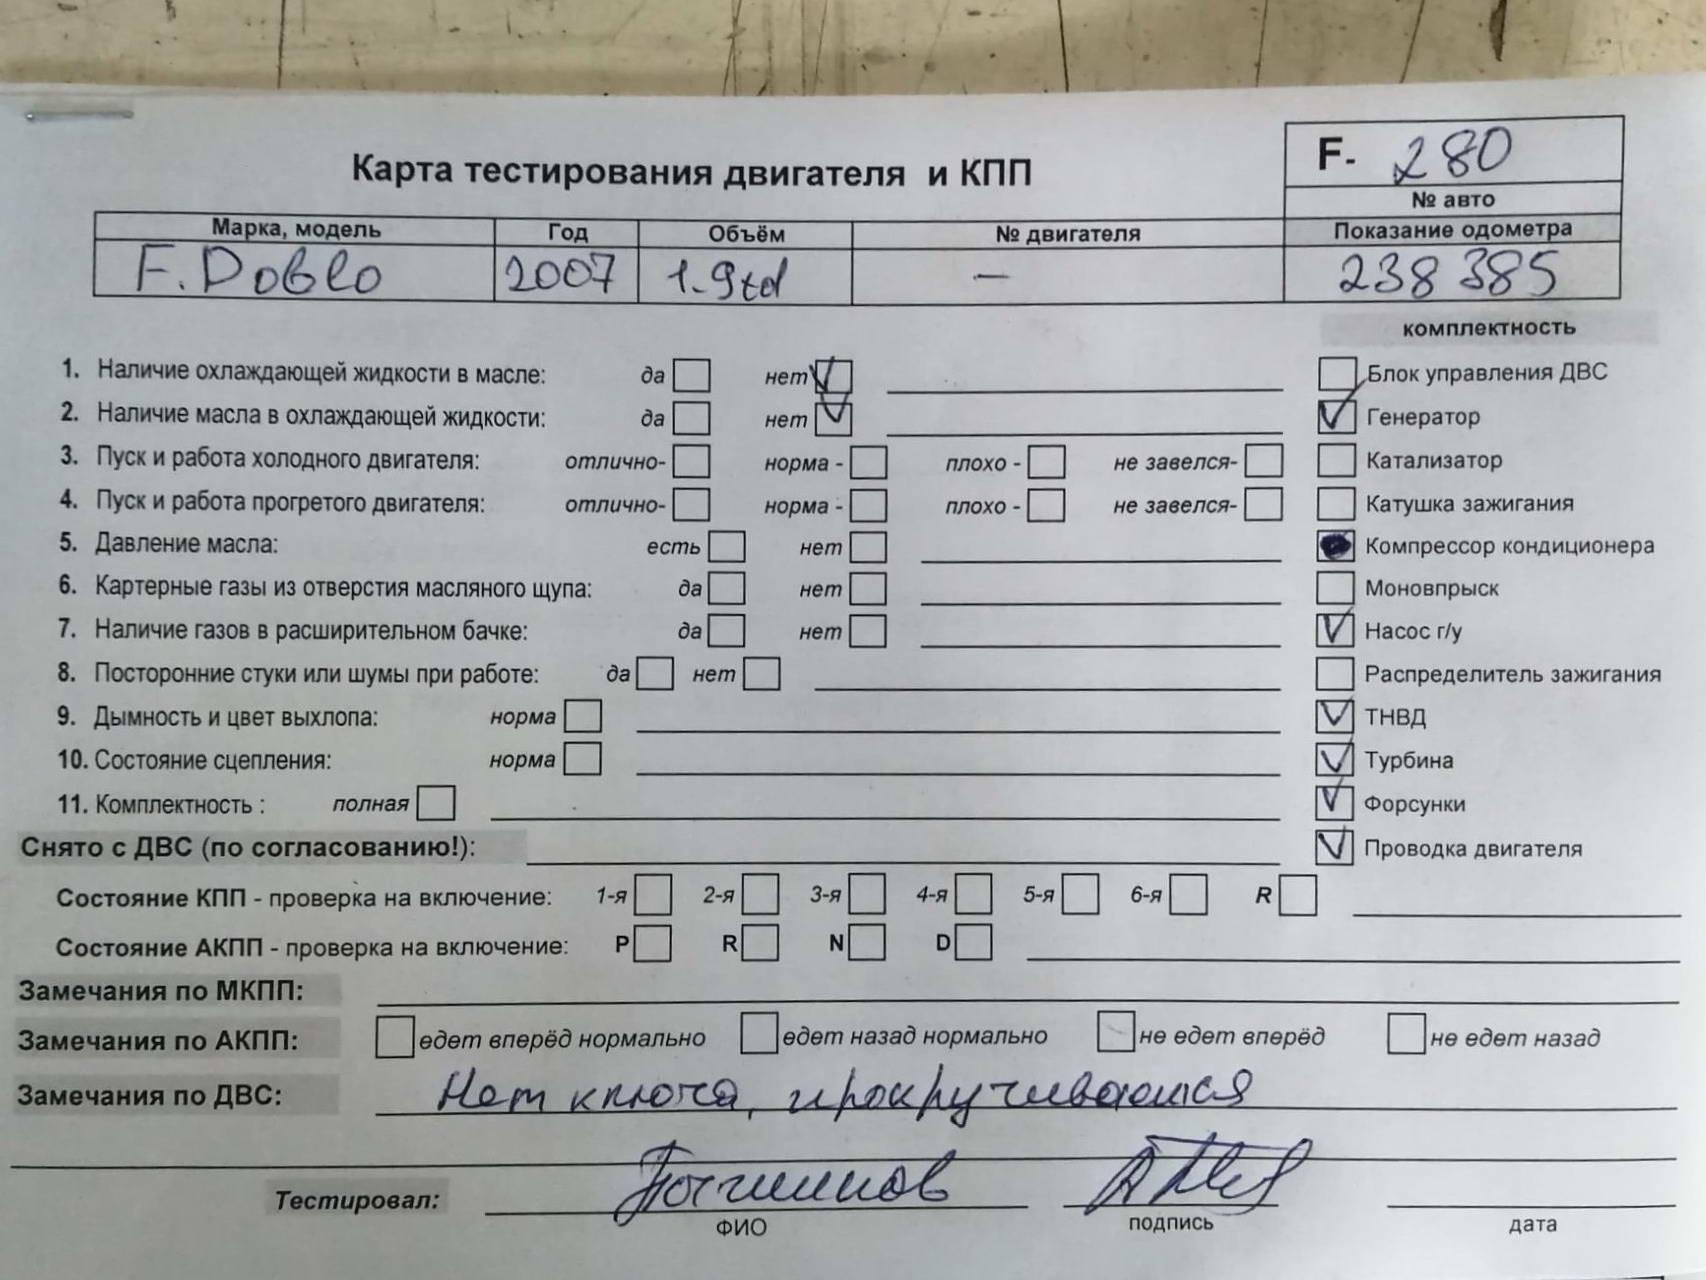 F- 280
№ авто
Карта тестирования двигателя и КПП
Марка, модель Год Объём № двигателя Показание одометра
F. Doblo 2007 1.9td — 238 385
комплектность
1. Наличие охлаждающей жидкости в масле: да нет
2. Наличие масла в охлаждающей жидкости: да нет
3. Пуск и работа холодного двигателя: отлично- норма - плохо - не завелся-
4. Пуск и работа прогретого двигателя: отлично- норма - плохо - не завелся-
5. Давление масла: есть нет
6. Картерные газы из отверстия масляного щупа: да нет
7. Наличие газов в расширительном бачке: да нет
8. Посторонние стуки или шумы при работе: да нет
9. Дымность и цвет выхлопа: норма
10. Состояние сцепления: норма
11. Комплектность : полная
Блок управления ДВС
Генератор
Катализатор
Катушка зажигания
Компрессор кондиционера
Моновпрыск
Насос г/у
Распределитель зажигания
ТНВД
Турбина
Форсунки
Проводка двигателя
Снято с ДВС (по согласованию!):
Состояние КПП - проверка на включение: 1-я 2-я 3-я 4-я 5-я 6-я R
Состояние АКПП - проверка на включение: P R N D
Замечания по МКПП:
Замечания по АКПП: едет вперёд нормально едет назад нормально не едет вперёд не едет назад
Замечания по ДВС: Нет ключа, прокручивается
Тестировал:
ФИО подпись дата